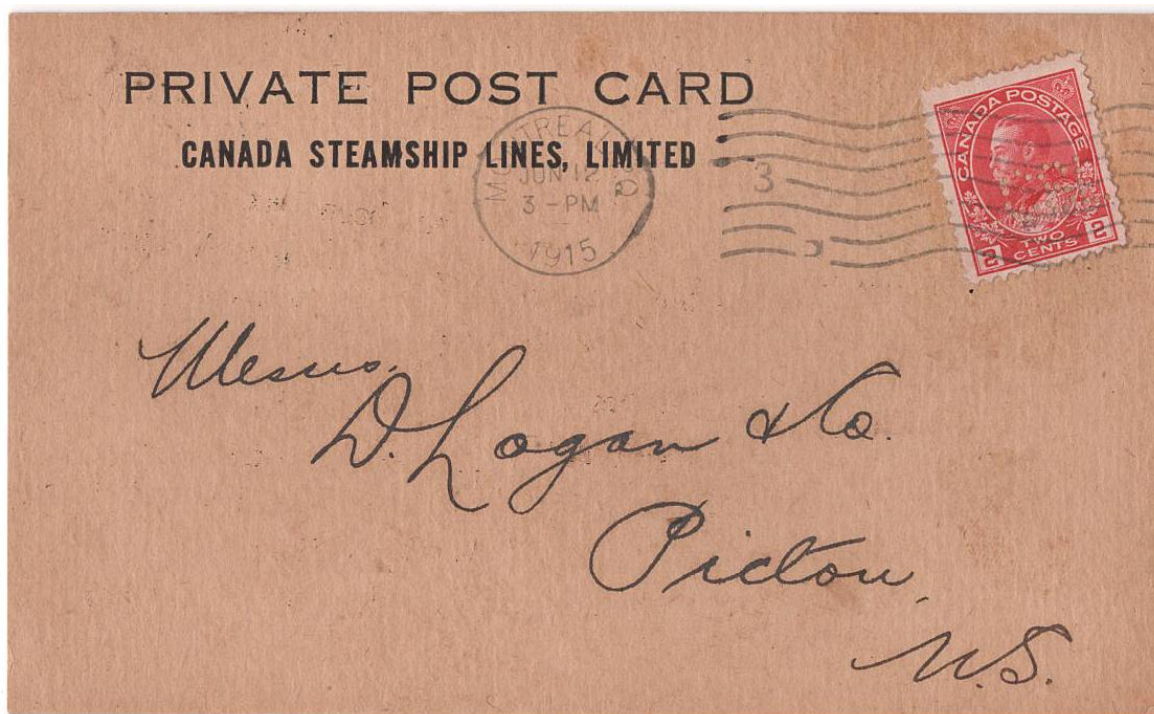 PRIVATE POST CARD
CANADA STEAMSHIP LINES, LIMITED
MONTREAL
JUN 12
3 - PM
1915
3
CANADA POSTAGE
2 TWO CENTS 2
Messrs.
D. Logan & Co.
Pictou,
N.S.